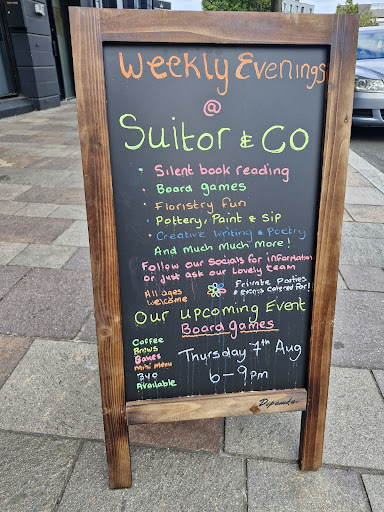 Weekly Evenings
@
Suitor & Co
· Silent book reading
· Board games
· Floristry fun
· Pottery, Paint & Sip
· Creative Writing & Poetry
And much much more!
Follow our socials for information
or just ask our lovely team
All ages
welcome
Private Parties
& events catered for!
Our upcoming Event
Board games
Coffee
Brews
Bakes
mini menu
BYO
Available
Thursday 7th Aug
6-9pm